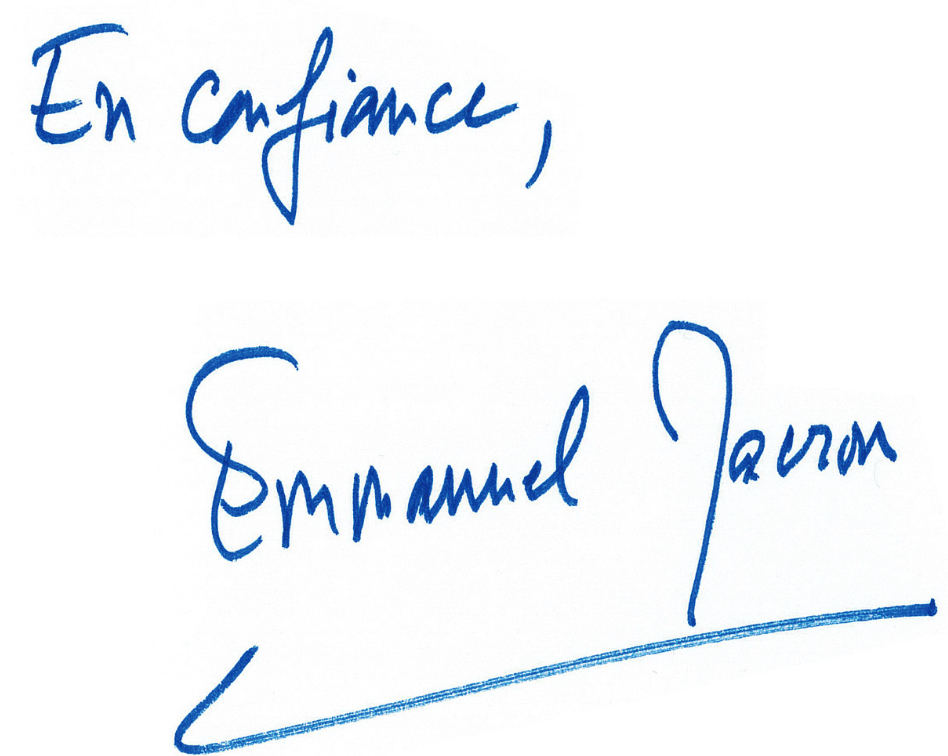 En confiance,
Emmanuel Macron